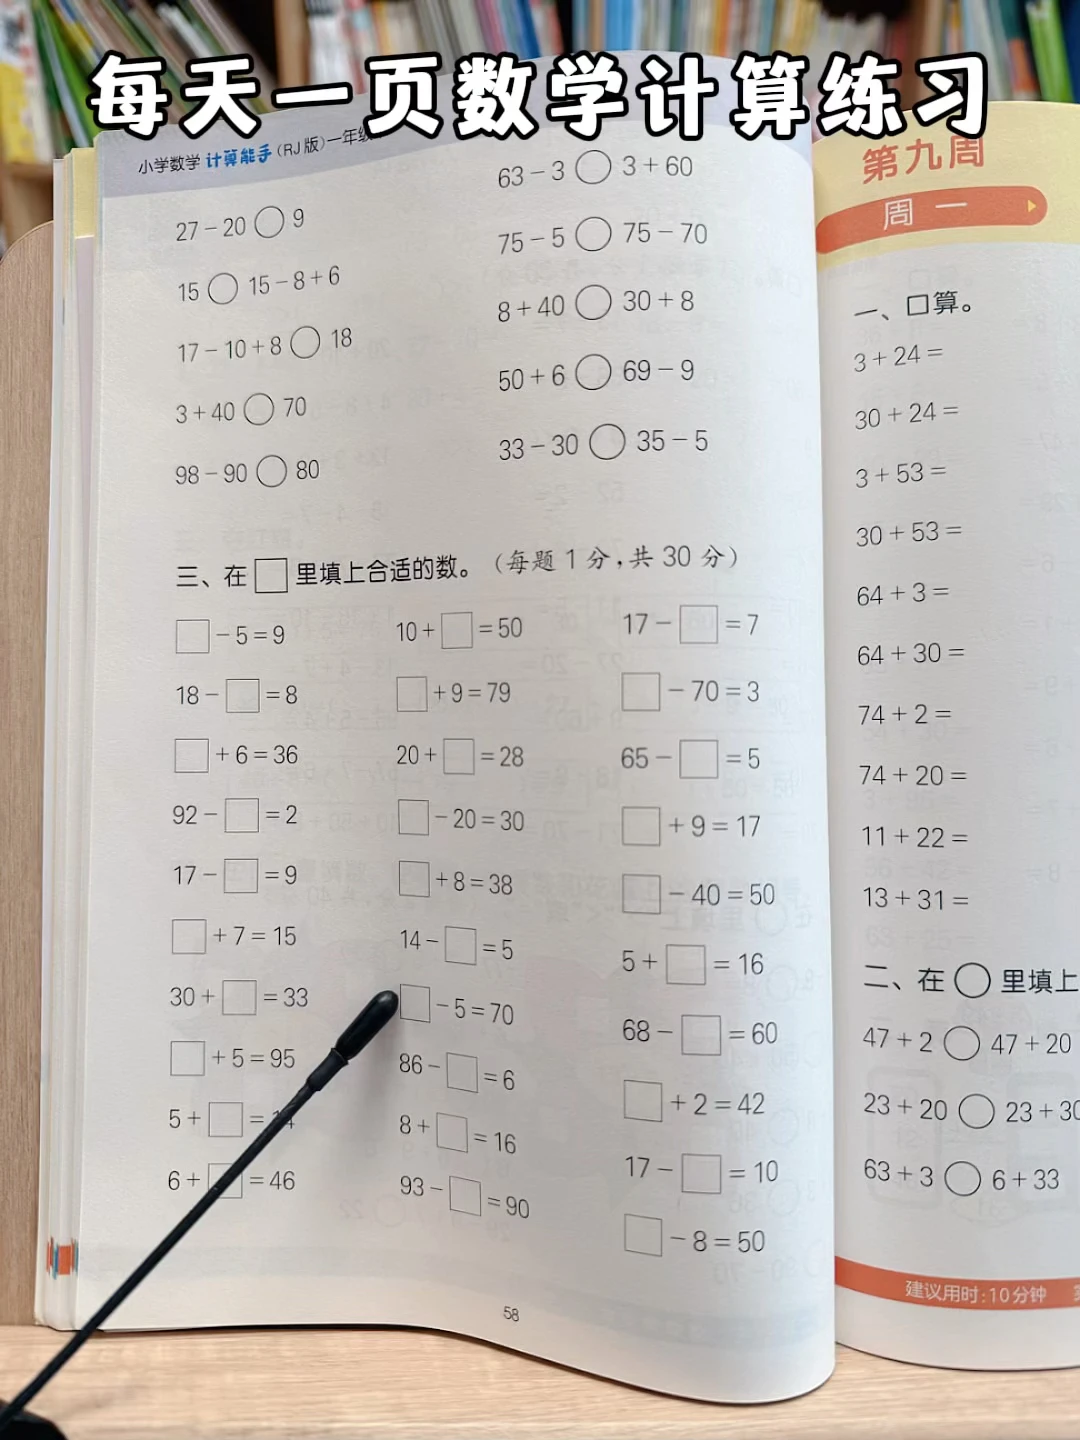 每天一页数学计算练习
小学数学 计算能手(RJ版)一年级
27-20○9
15○15-8+6
17-10+8○18
3+40○70
98-90○80
63-3○3+60
75-5○75-70
8+40○30+8
50+6○69-9
33-30○35-5
三、在□里填上合适的数。(每题1分,共30分)
□-5=9
18-□=8
□+6=36
92-□=2
17-□=9
□+7=15
30+□=33
□+5=95
5+□=
6+□=46
10+□=50
□+9=79
20+□=28
□-20=30
□+8=38
14-□=5
□-5=70
86-□=6
8+□=16
93-□=90
17-□=7
□-70=3
65-□=5
□+9=17
□-40=50
5+□=16
68-□=60
□+2=42
17-□=10
□-8=50
58
第九周
周一
一、口算。
3+24=
30+24=
3+53=
30+53=
64+3=
64+30=
74+2=
74+20=
11+22=
13+31=
二、在○里填上
47+2○47+20
23+20○23+30
63+3○6+33
建议用时:10分钟